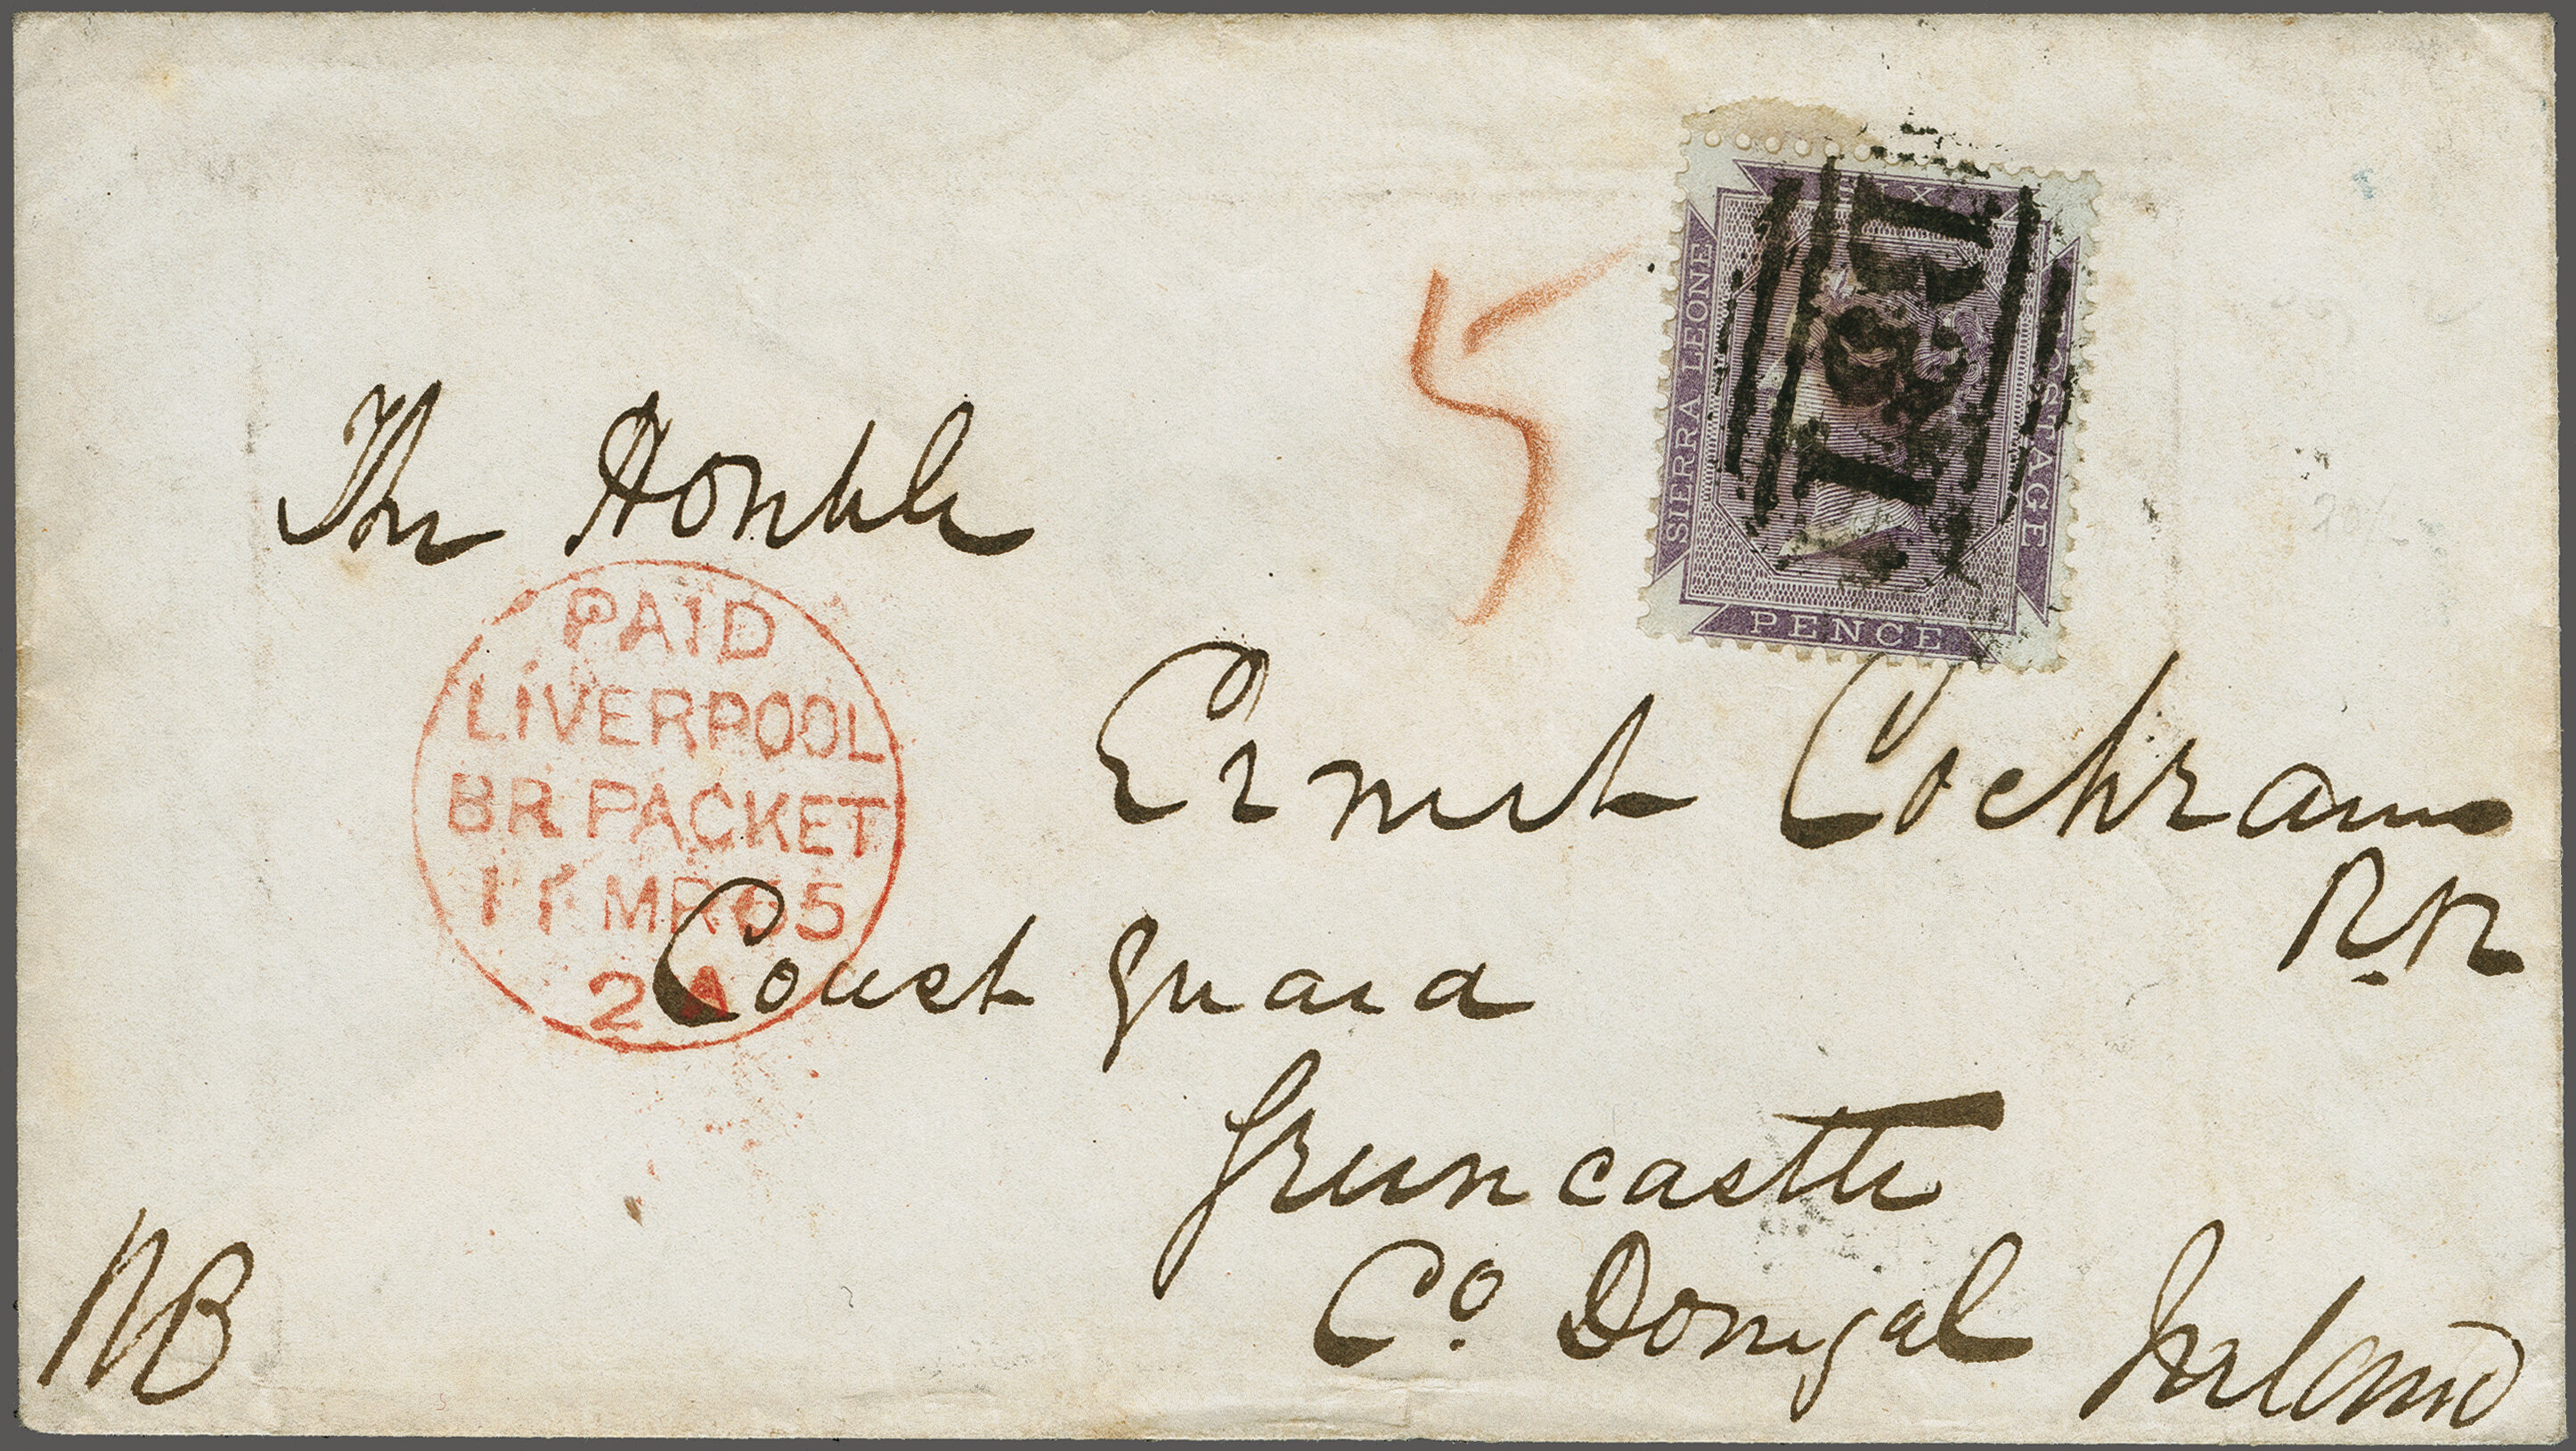 SIX
SIERRA LEONE
POSTAGE
PENCE
5
The Honble
PAID
LIVERPOOL
BR PACKET
11 MR 65
2 A
Ernest Cochrane
R.N
Coast Guard
Greencastle
Co Donegal Ireland